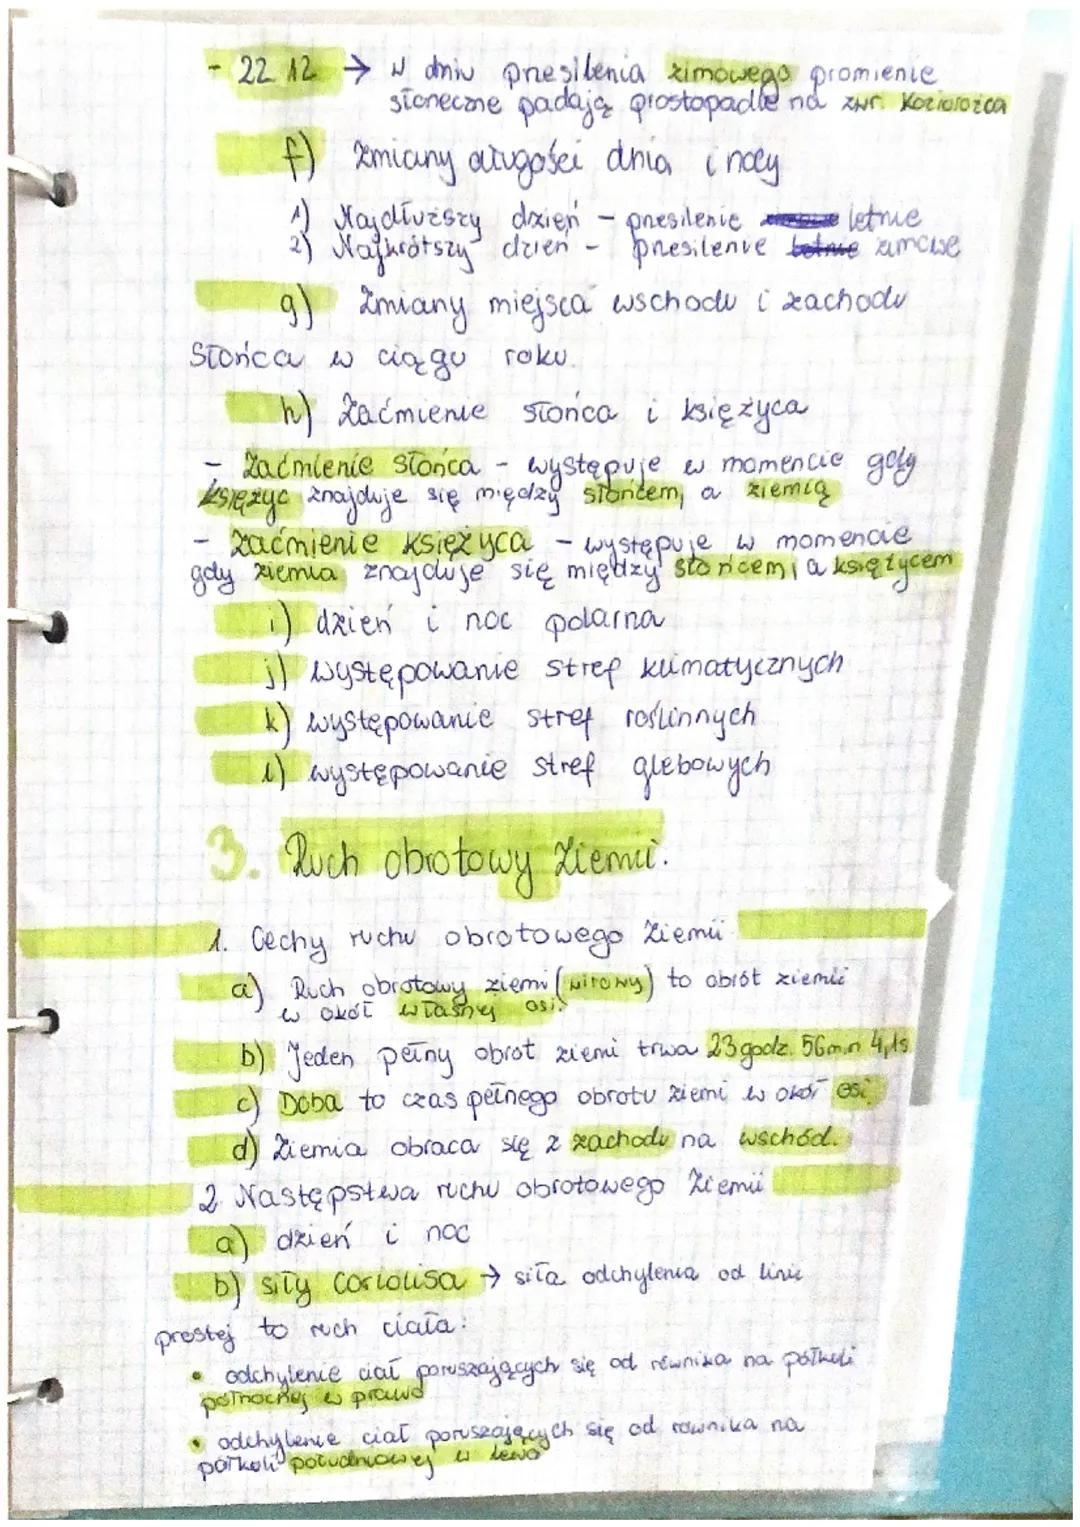 - 22 12 → W dniu przesilenia zimowego promienie
słoneczne padają prostopadle na zwr. Koziorożca
f) Zmiany długości dnia i nocy
1) Najdłuższy dzień - przesilenie letnie
2) Najkrótszy dzień - przesilenie zimowe
g) Zmiany miejsca wschodu i zachodu
Słońca w ciągu roku.
h) Zaćmienie słońca i księżyca
- Zaćmienie Słońca - występuje w momencie gdy
księżyc znajduje się między słońcem, a ziemią
- Zaćmienie księżyca - występuje w momencie
gdy ziemia znajduje się między słońcem, a księżycem
i) dzień i noc polarna
j) występowanie stref klimatycznych
k) występowanie stref roślinnych
l) występowanie stref glebowych
3. Ruch obrotowy Ziemi.
1. Cechy ruchu obrotowego Ziemi
a) Ruch obrotowy ziemi (wirowy) to obrót ziemi
w okół własnej osi.
b) Jeden pełny obrót ziemi trwa 23 godz. 56 min 4,1s
c) Doba to czas pełnego obrotu ziemi w okół osi.
d) Ziemia obraca się z zachodu na wschód.
2. Następstwa ruchu obrotowego Ziemi
a) dzień i noc
b) siły Coriolisa → siła odchylenia od linii
prostej to ruch ciała:
• odchylenie ciał poruszających się od równika na półkuli
północnej w prawo
• odchylenie ciał poruszających się od równika na
półkuli południowej w lewo